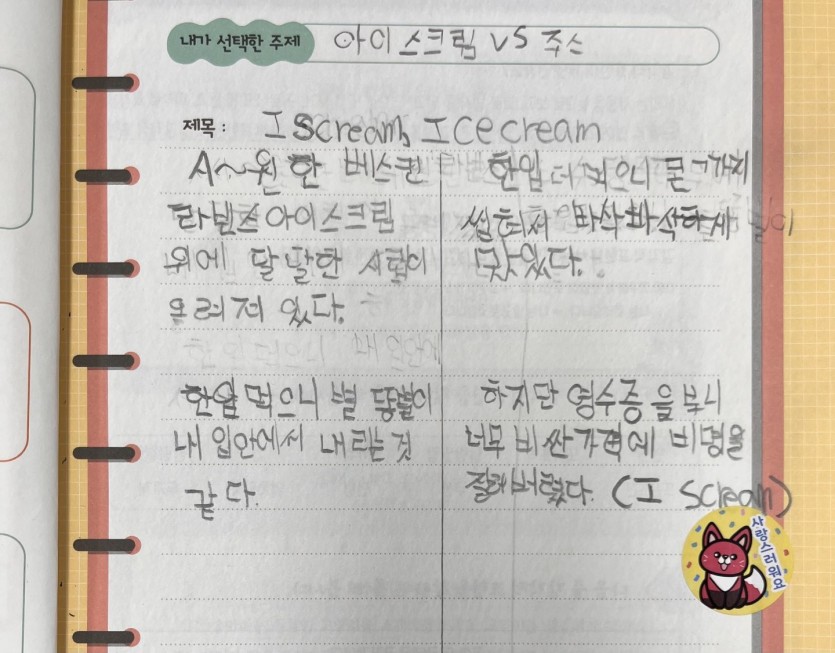 내가 선택한 주제 아이스크림 VS 주스
제목: I scream, Ice cream
A~원한 베스킨
라빈스아이스크림
위에 달달한 시럽이
올려져 있다.
한입 먹으니 별똥별이
내 입안에서 내리는 것
같다.
한입 더 먹으니
바삭바삭하
맛있다.
하지만 영수증을 보니
너무 비싼가격에 비명을
질러버렸다. (I scream)
사랑스러워요